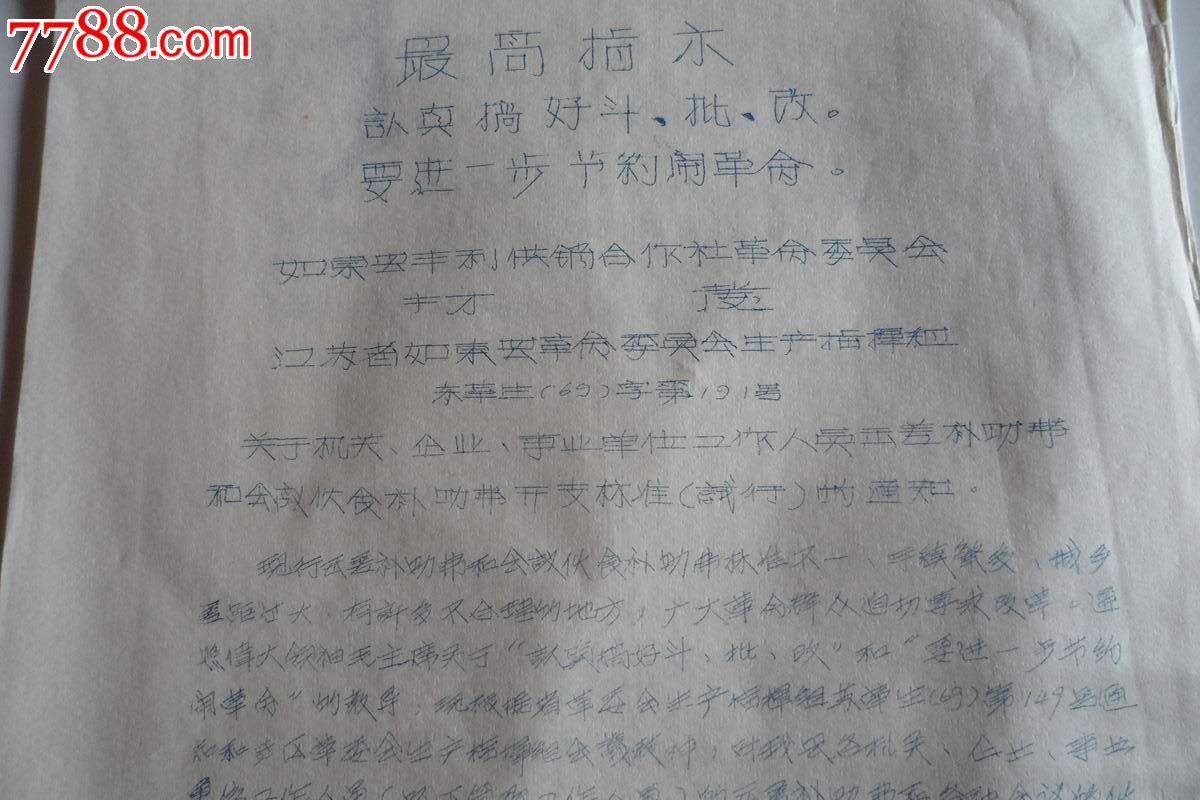 7788.com
最高指示
认真搞好斗、批、改。
要进一步节约闹革命。
如东县丰利供销合作社革命委员会
江苏省如东县革命委员会生产指挥组
东革生(69)字第191号
关于机关、企业、事业单位工作人员出差补助费
和会议伙食补助费开支标准(试行)的通知。
现行出差补助费和会议伙食补助费标准不一、手续繁多、城乡
差距过大,有许多不合理的地方,广大革命群众迫切要求改革。遵
照伟大领袖毛主席关于"认真搞好斗、批、改"和"要进一步节约
闹革命"的教导,现根据省革委会生产指挥组苏革生(69)第149号通
知和专区革委会生产指挥组会议精神,对我县各机关、企业、事业
单位工作人员(以下简称工作人员)的出差补助费和各种会议的伙